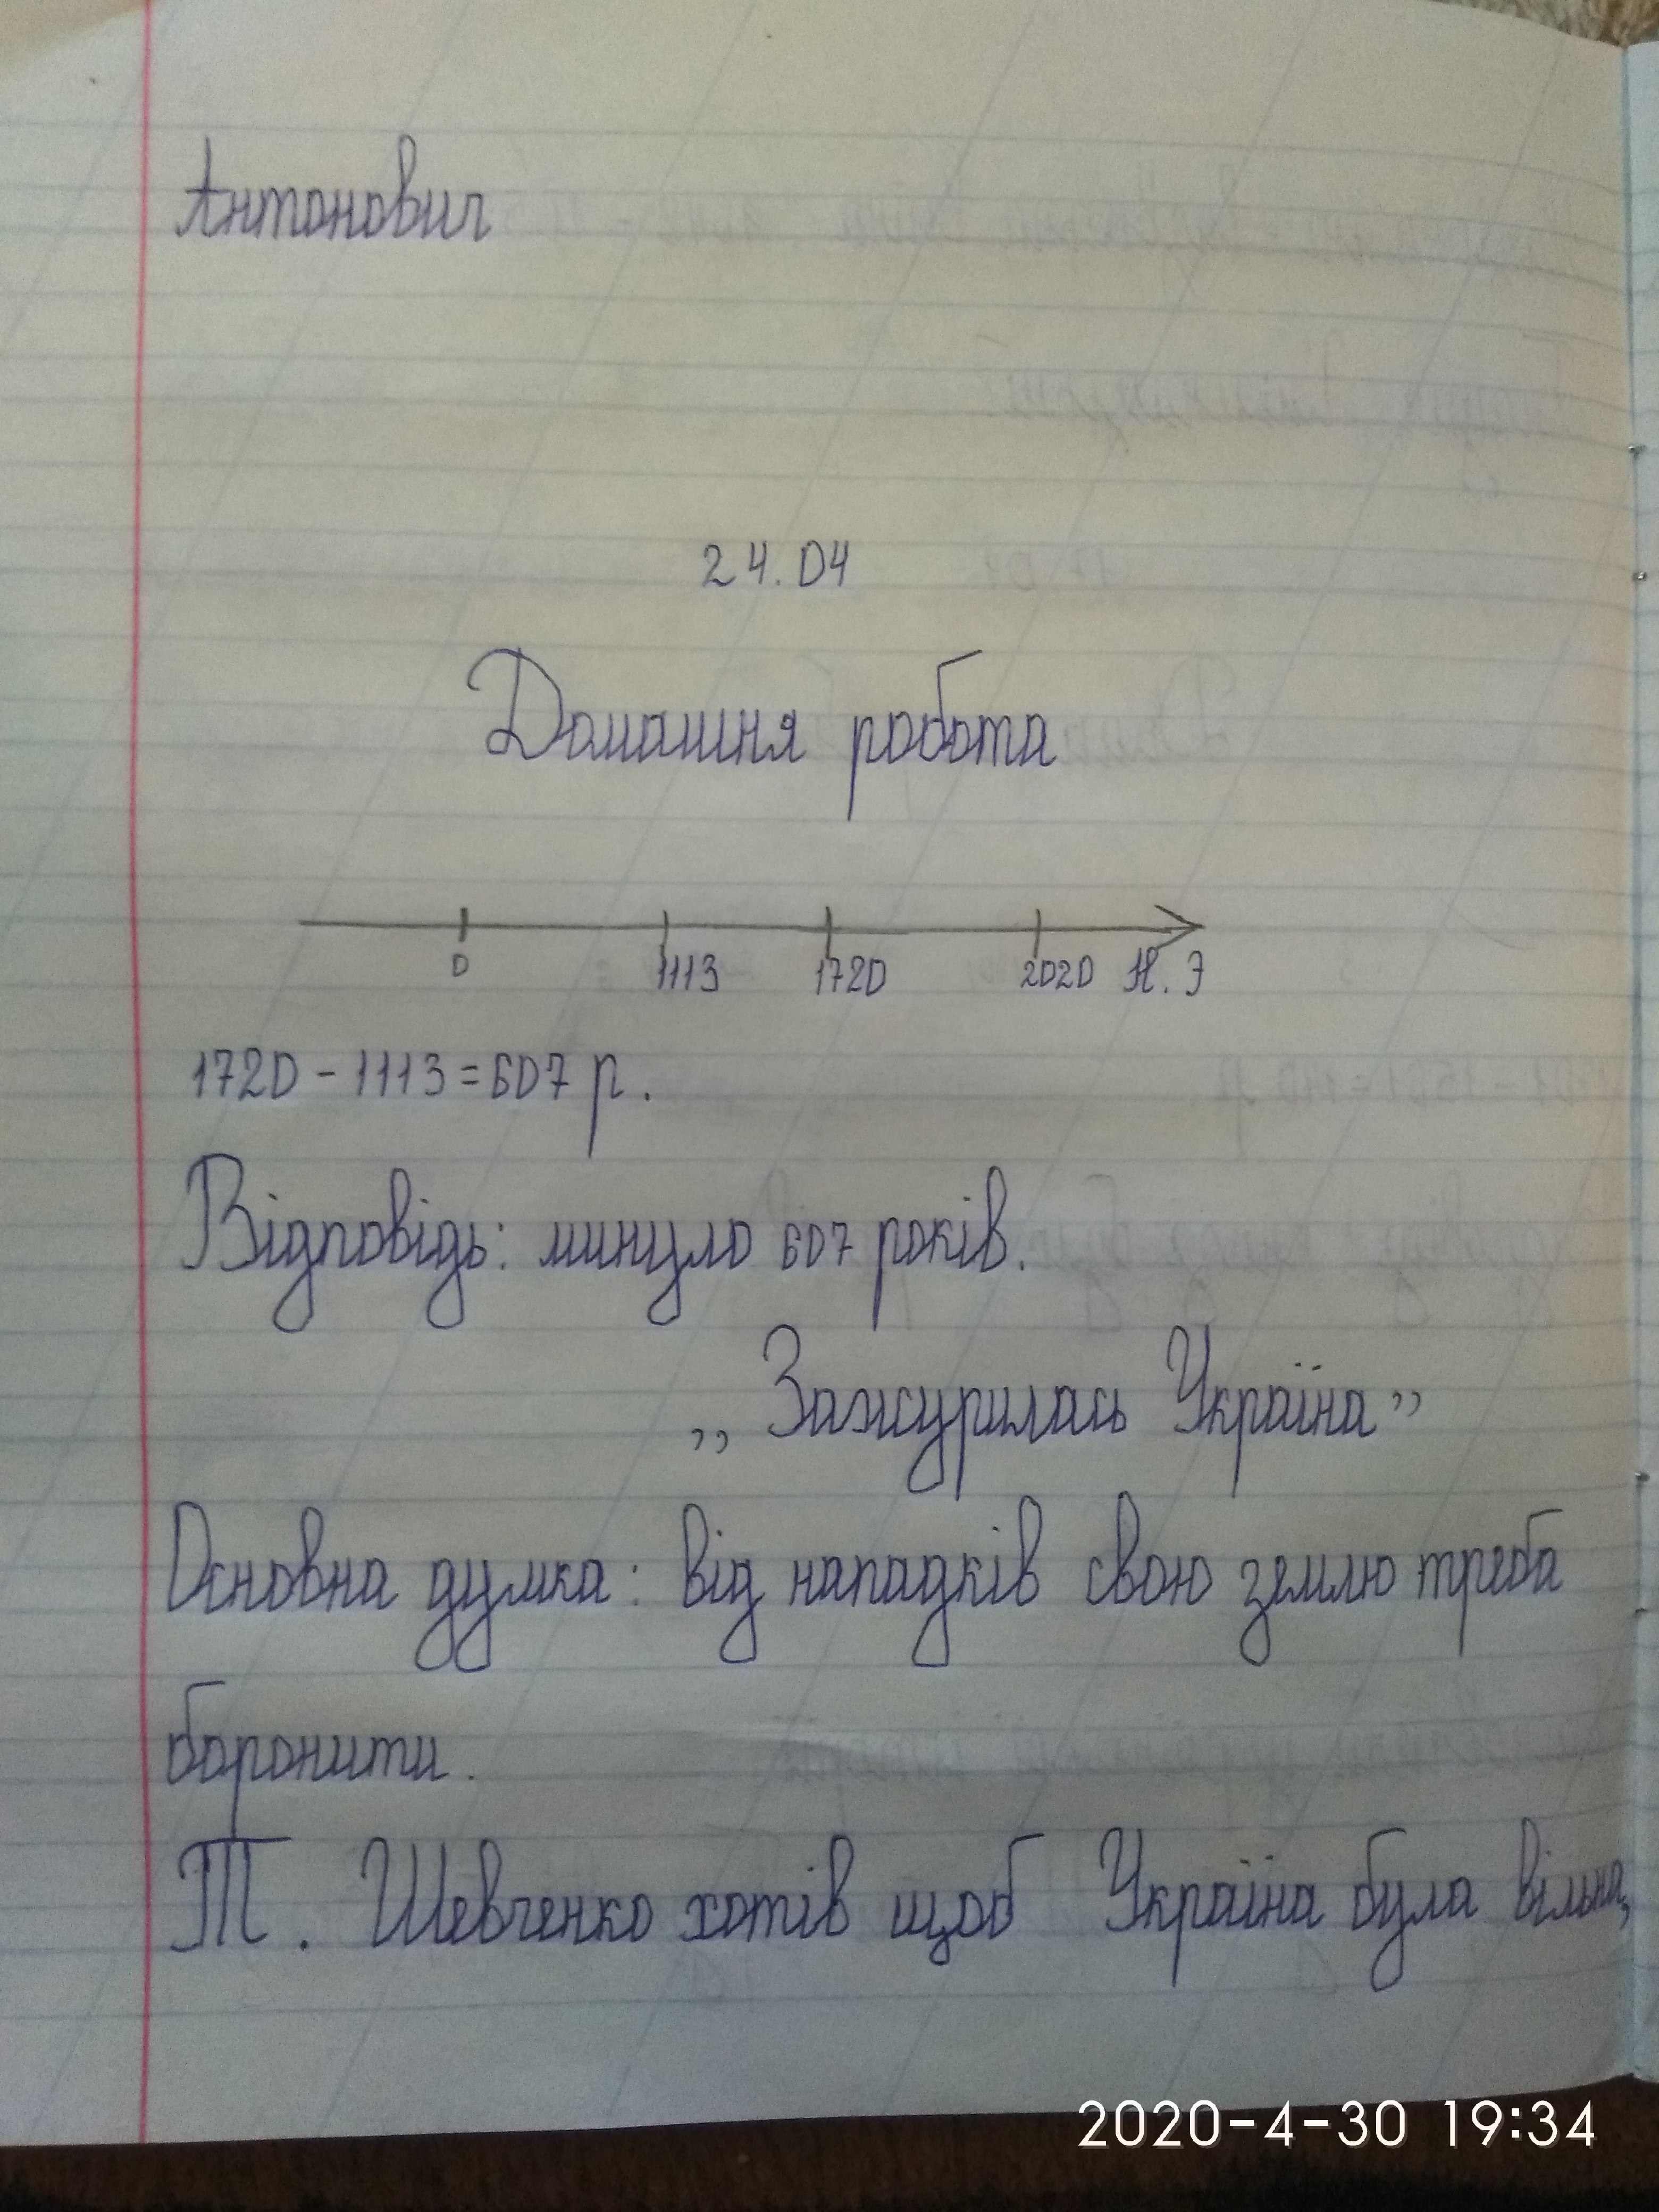 Антонович
24.04
Домашня робота
0 1113 1720 2020 Н.Э
1720-1113=607 р.
Відповідь: минуло 607 років.
„Зажурилась Україна”
Основна думка: від нападків свою землю треба
боронити.
Т. Шевченко хотів щоб Україна була вільна,
2020-4-30 19:34